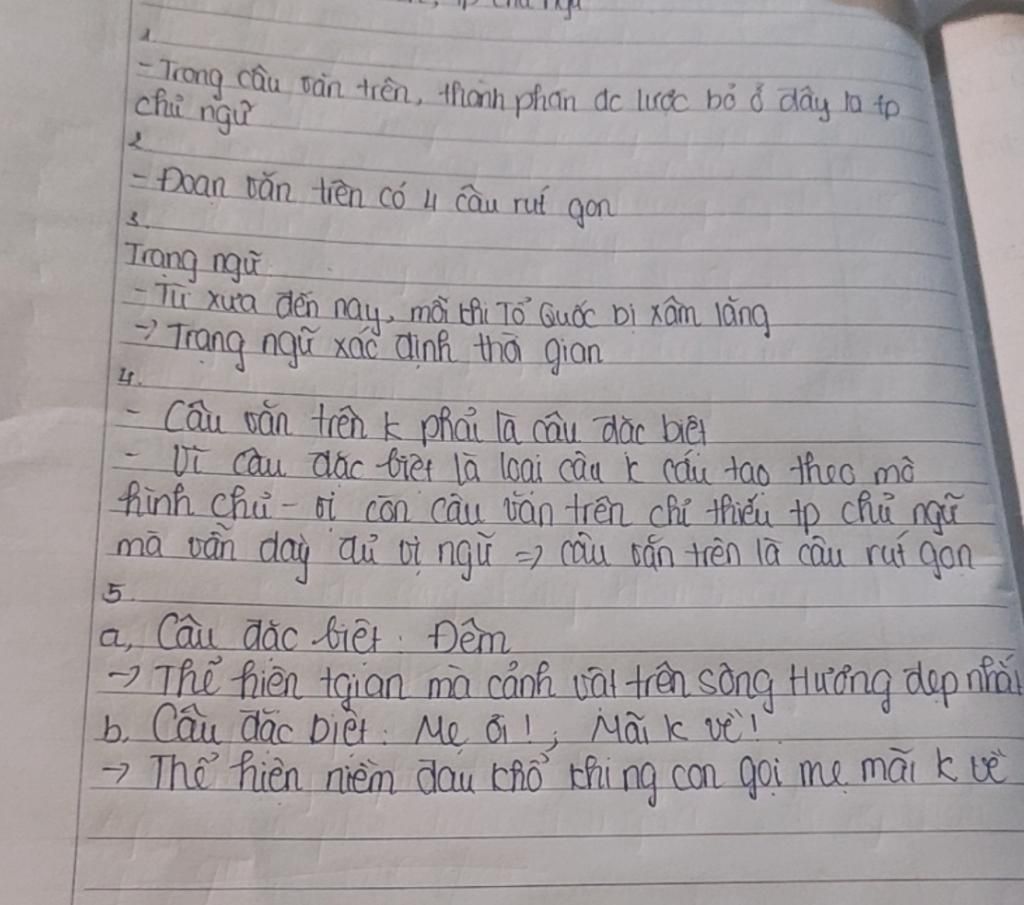 1.
- Trong câu văn trên, thành phần đc lược bỏ ở đây là tp
chủ ngữ
2
- Đoạn văn trên có 4 câu rút gọn
3.
Trạng ngữ
- Từ xưa đến nay, mỗi khi Tổ Quốc bị xâm lăng
-> Trạng ngữ xác định thời gian
4.
- Câu văn trên k phải là câu đặc biệt
- Vì câu đặc biệt là loại câu k cấu tạo theo mô
hình chủ - vị còn câu văn trên chỉ thiếu tp chủ ngữ
mà vẫn đầy đủ vị ngữ => câu văn trên là câu rút gọn
5.
a, Câu đặc biệt: Đêm
-> Thể hiện tgian mà cảnh vật trên sông Hương đẹp nhất
b. Câu đặc biệt: Mẹ ơi!; Mãi k về!
-> Thể hiện niềm đau khổ khi ng con gọi mẹ mãi k về